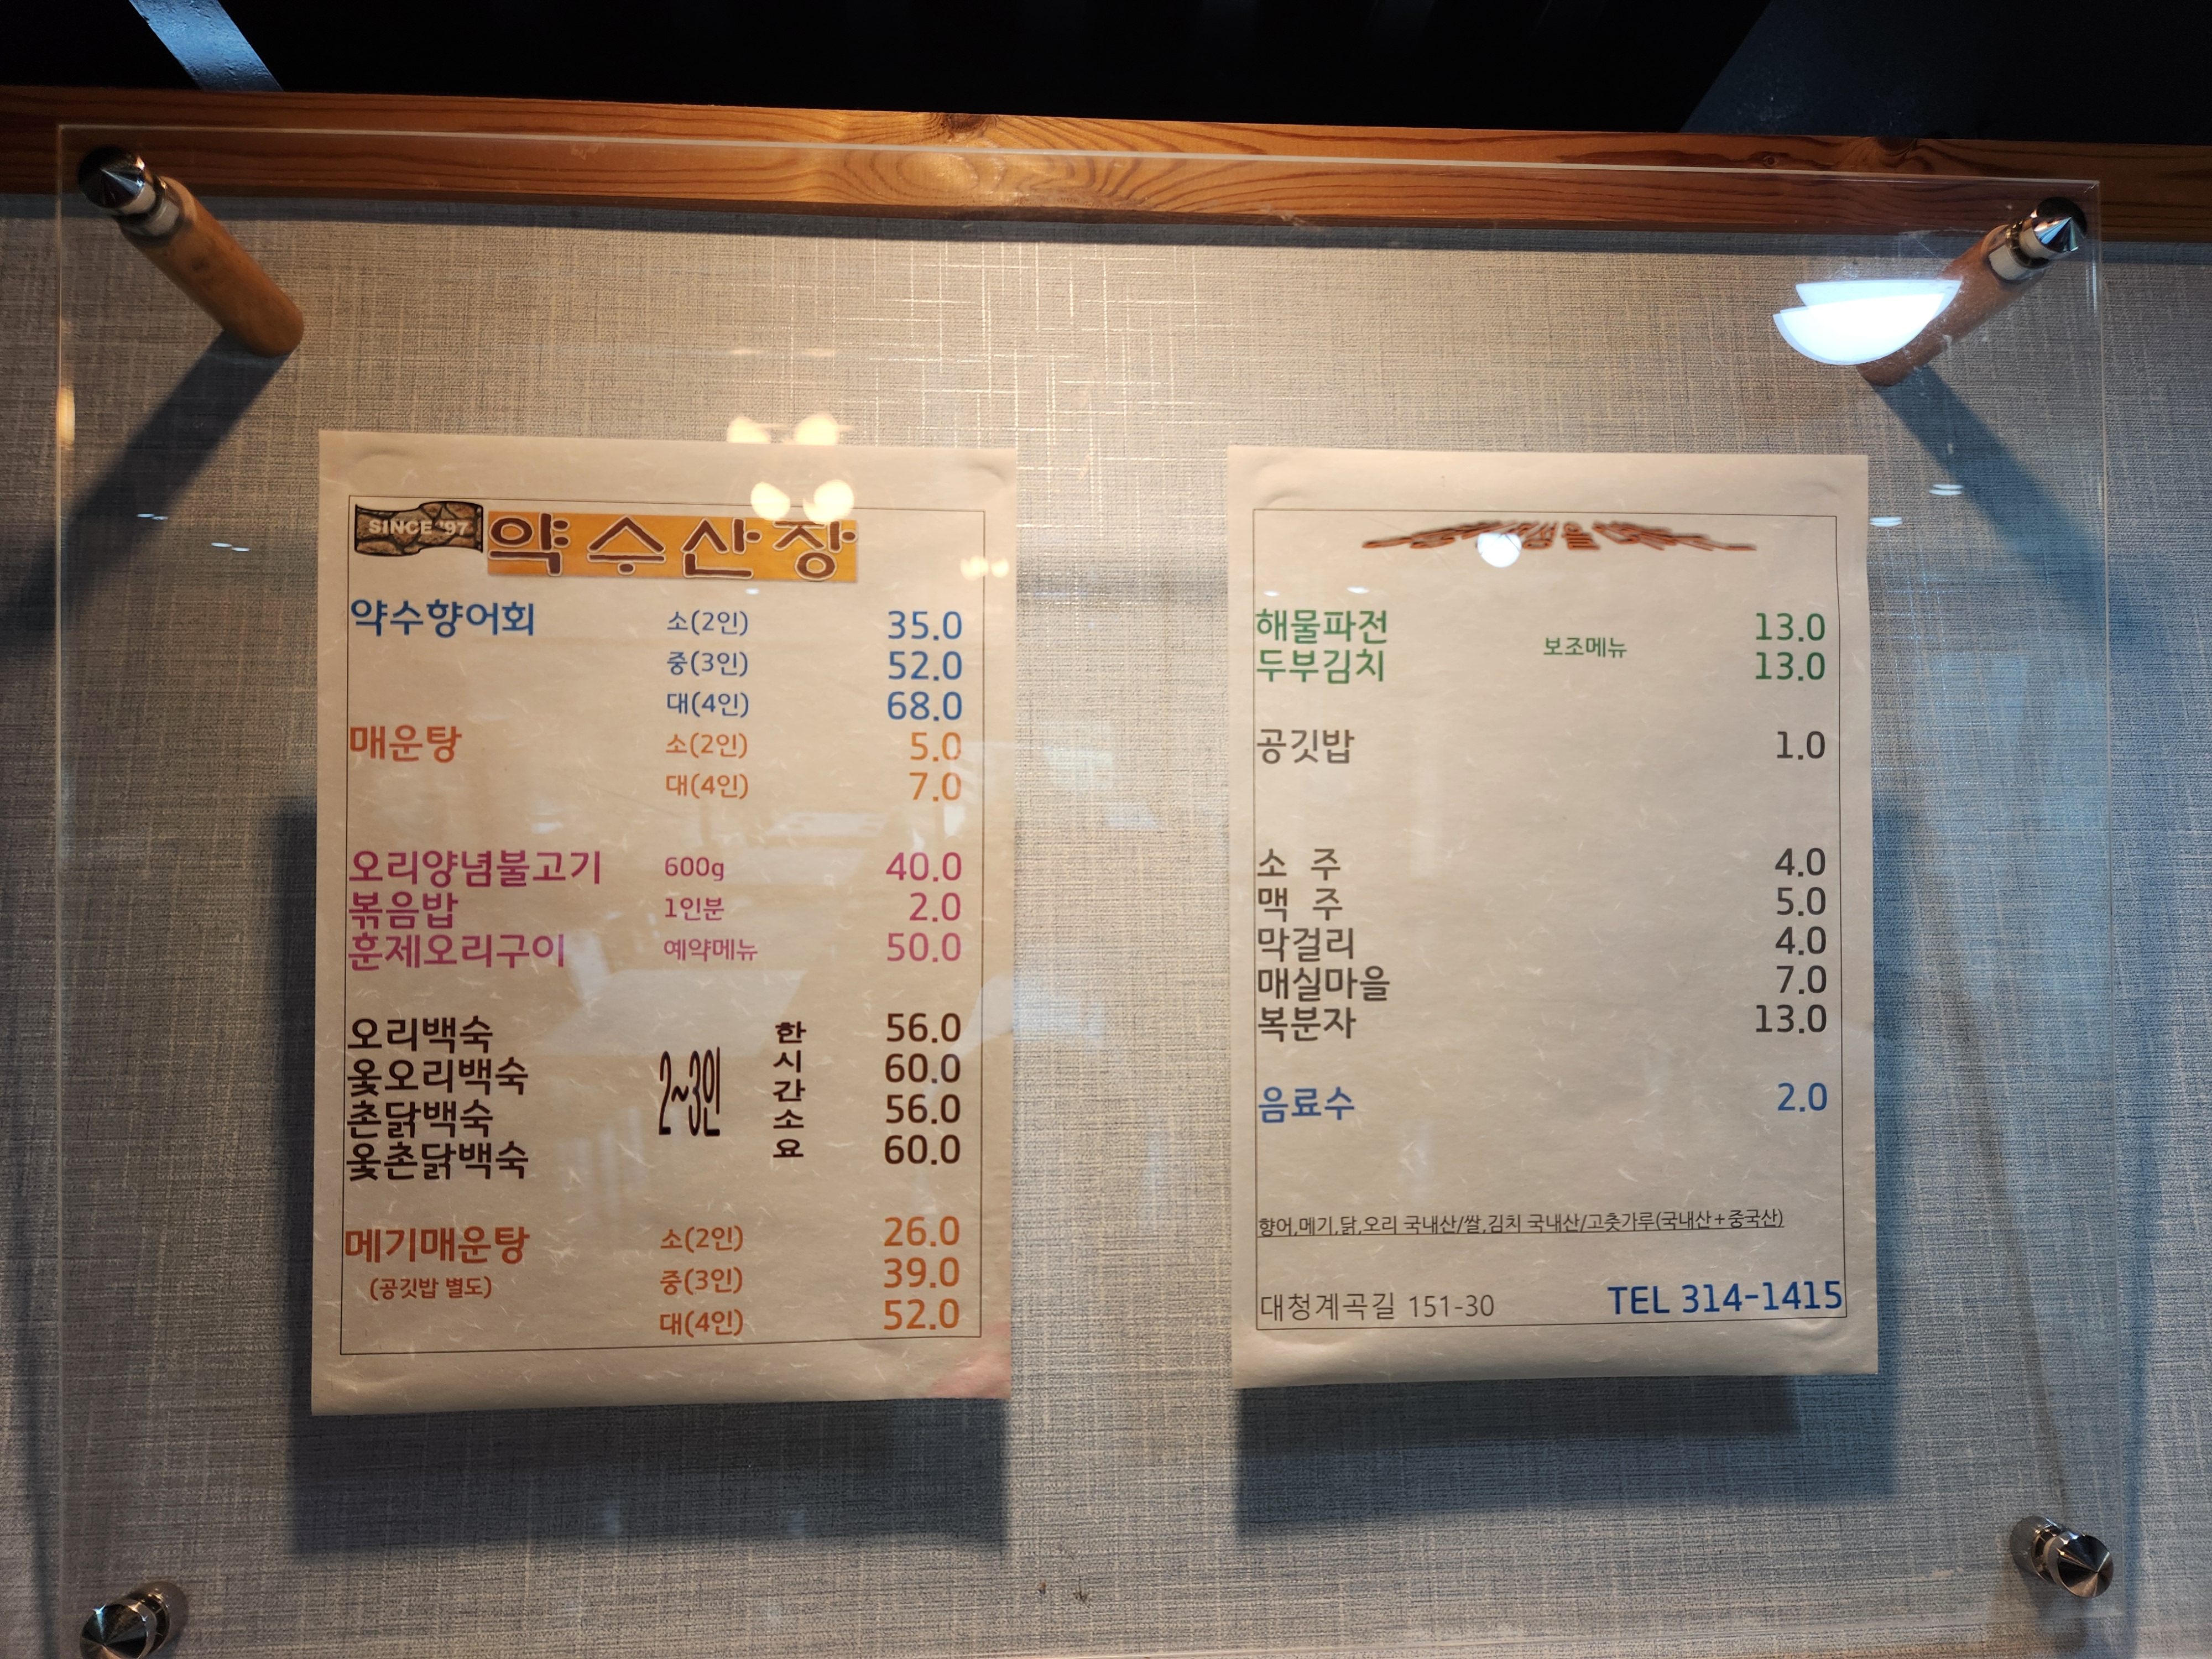 SINCE '97 약수산장
약수향어회 소(2인) 35.0
중(3인) 52.0
대(4인) 68.0
매운탕 소(2인) 5.0
대(4인) 7.0
오리양념불고기 600g 40.0
볶음밥 1인분 2.0
훈제오리구이 예약메뉴 50.0
오리백숙 56.0
옻오리백숙 60.0
촌닭백숙 56.0
옻촌닭백숙 60.0
2~3인
한시간소요
메기매운탕 소(2인) 26.0
(공깃밥 별도) 중(3인) 39.0
대(4인) 52.0
해물파전 13.0
보조메뉴
두부김치 13.0
공깃밥 1.0
소 주 4.0
맥 주 5.0
막걸리 4.0
매실마을 7.0
복분자 13.0
음료수 2.0
향어,메기,닭,오리 국내산/쌀,김치 국내산/고춧가루(국내산+중국산)
대청계곡길 151-30 TEL 314-1415